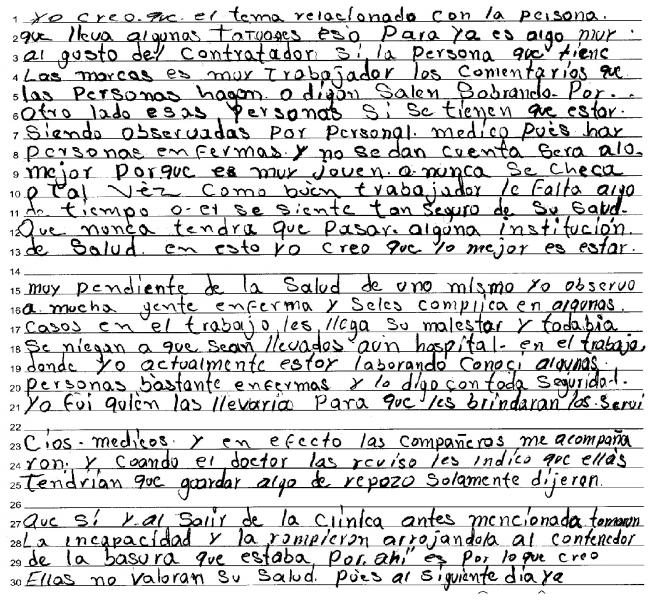 1 Yo creo. que. el tema relacionado con la persona.
2 que lleva algunos Tatuages eso Para ya es algo muy.
3 al gusto del Contratador Si la Persona que tiene
4 Las marcas es muy Trabajador los Comentarios que
5 las Personas hagan. o digan Salen Sobrando. Por. -
6 Otro lado esas Personas Si Se tienen que estar.
7 Siendo observadas Por Personal. medico pues hay
8 personas enfermas. y no Se dan Cuenta Sera alo.
9 mejor porque es muy Joven. o nunca Se Checa
10 o Tal Vèz Como buen trabajador le Falta algo
11 de tiempo o- el se siente tan Seguro de Su Salud-
12 Que nunca tendra que Pasar. alguna institución
13 de Salud. en esto yo Creo que lo mejor es estar.
14
15 muy pendiente de la Salud de uno mismo Yo observo
16 a. mucha gente enferma y Seles complica en algunos.
17 Casos en el trabajo, les llega Su malestar y todabia
18 Se niegan a que Sean llevados aun hospital- en el trabajo,
19 donde Yo actualmente estoy laborando Conoci algunas.
20 personas bastante enfermas y lo digo con toda Seguridad.
21 Yo fui quien las llevaria Para que les brindaran los. Servi
22
23 Cios- medicos. y en efecto las Compañeros me acompaña
24 ron. y Cuando el doctor las reviso les indico que ellas
25 tendrian que guardar algo de repozo Solamente dijeron.
26
27 Que Sí y al Salir de la Clínica antes mencionada tomaron
28 La incapacidad y la rompieron arrojandola al contenedor
29 de la basura que estaba por. ahi es por lo que creo
30 Ellas no Valoran Su Salud. pues al Siguiente dia ya